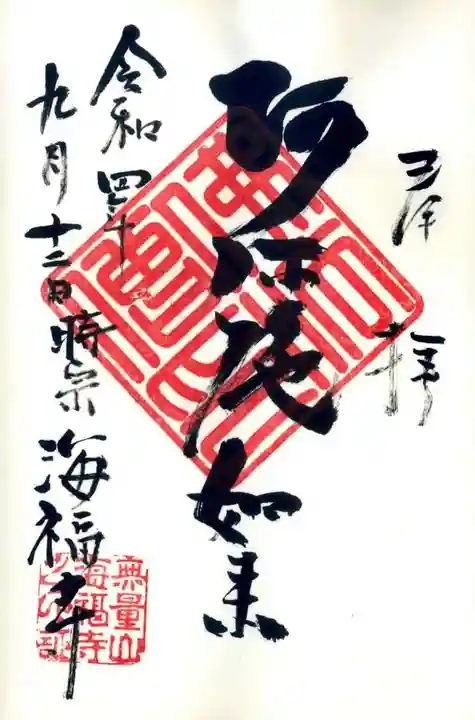 奉拝
阿弥陀如来
令和四年
九月十二日時宗
海福寺
無量山
海福寺